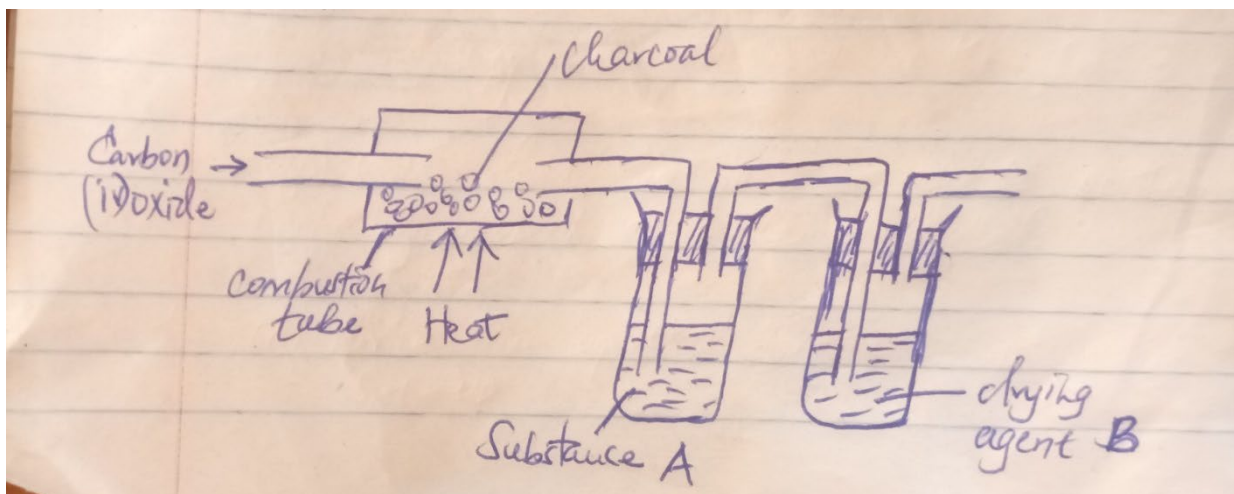 Charcoal
Carbon
(iv)oxide
Combustion
tube
Heat
Substance A
drying
agent B